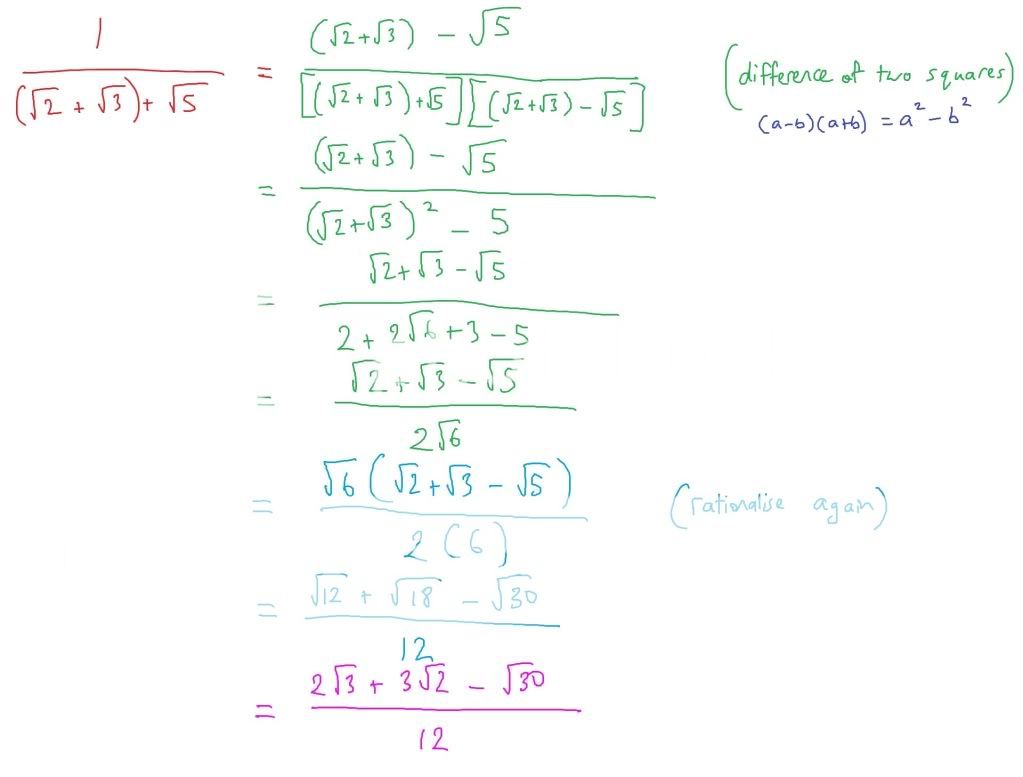 1/((√2 + √3) + √5) = ((√2+√3) - √5)/([(√2 + √3) + √5][(√2+√3) - √5]) (difference of two squares)
(a-b)(a+b) = a² - b²
= ((√2+√3) - √5)/((√2+√3)² - 5)
= (√2+√3 - √5)/(2 + 2√6 + 3 - 5)
= (√2 + √3 - √5)/(2√6)
= (√6(√2+√3 - √5))/(2(6)) (rationalise again)
= (√12 + √18 - √30)/12
= (2√3 + 3√2 - √30)/12